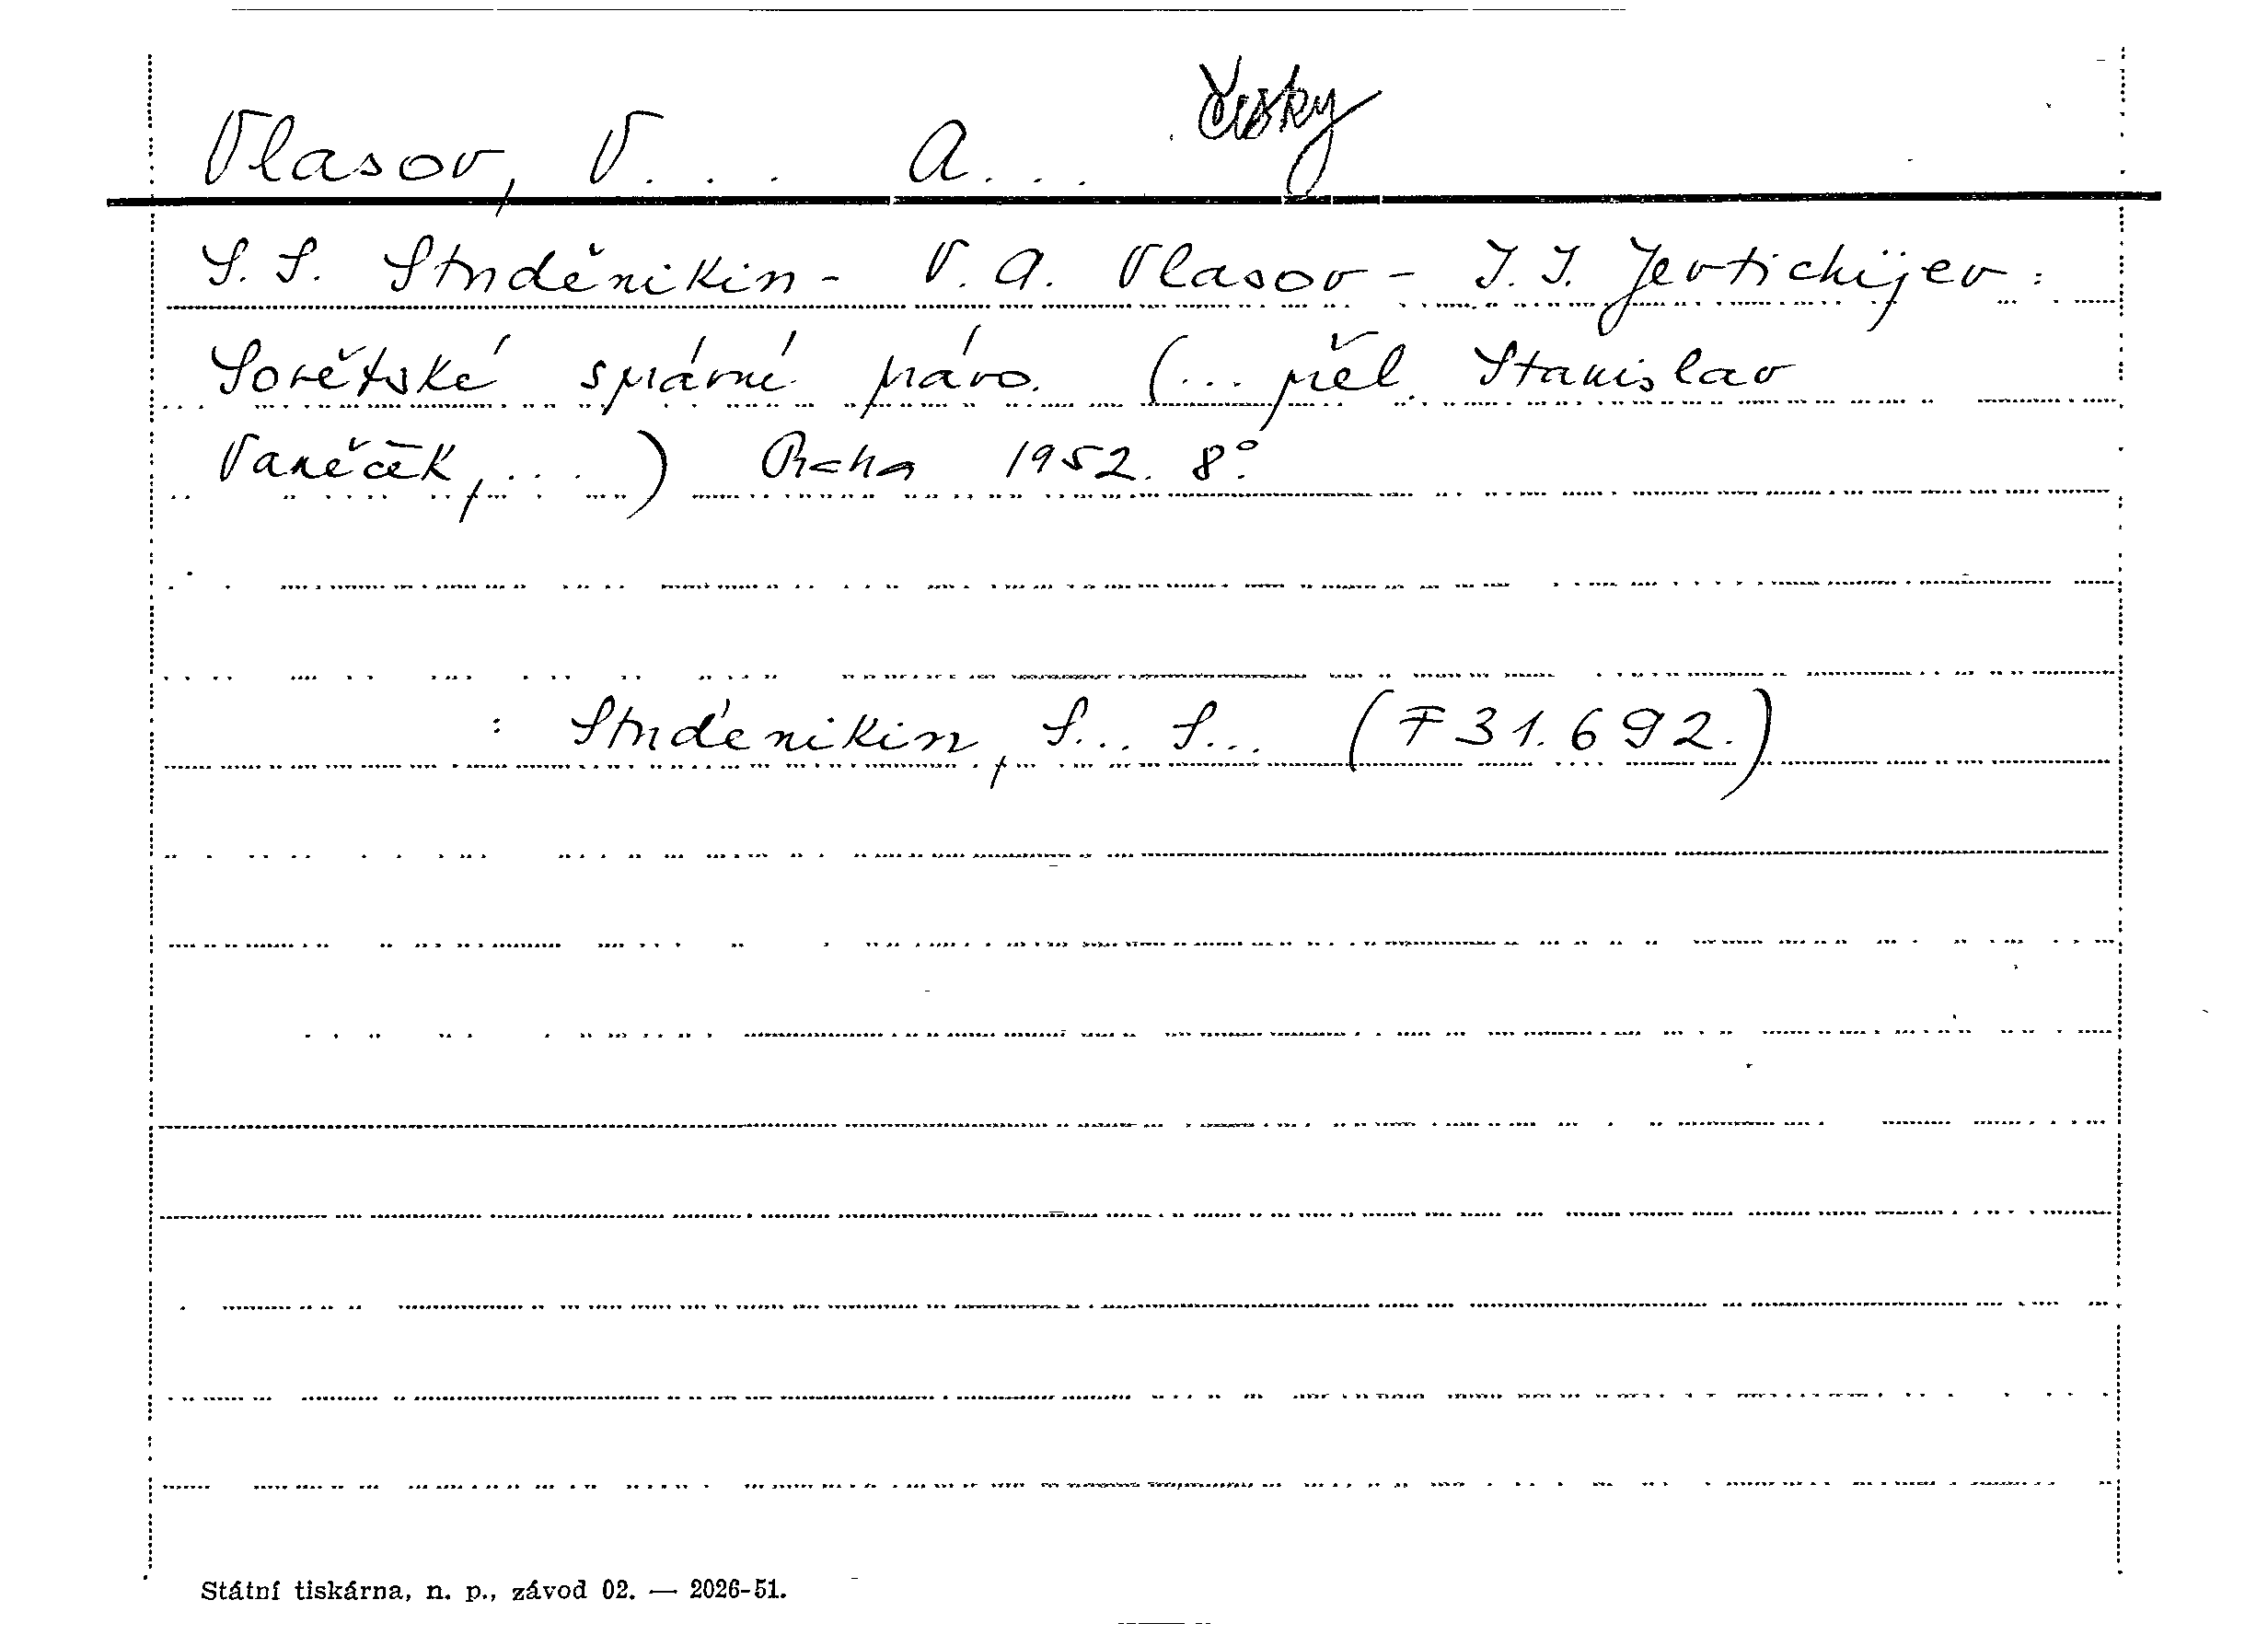 česky
Vlasov, V... A...
S. S. Studěnikin - V. A. Vlasov - I. I. Jevtichijev:
Sovětské správní právo. (... přel. Stanislav
Vaněček, ...) Praha 1952. 8°.
: Studěnikin, S... S... (F 31.692.)
Státní tiskárna, n. p., závod 02. — 2026-51.